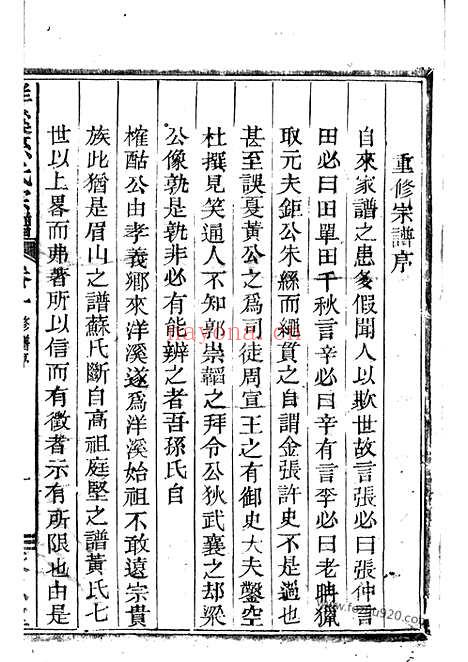 重修宗譜序
自來家譜之患多假聞人以欺世故言張必曰張仲言
田必曰田單田千秋言辛必曰辛有言李必曰老聃獵
取元夫鉅公朱絲而繩貫之自謂金張許史不是過也
甚至誤夏黃公之爲司徒周宣王之有御史大夫鑿空
杜撰見笑通人不知郭崇韜之拜令公狄武襄之却梁
公像孰是孰非必有能辨之者吾孫氏自
榷酤公由孝義鄉來洋溪遂爲洋溪始祖不敢遠宗貴
族此猶是眉山之譜蘇氏斷自高祖庭堅之譜黃氏七
世以上畧而弗著所以信而有徵者示有所限也由是
修譜序
nayona.cn
www.fengtu920.com